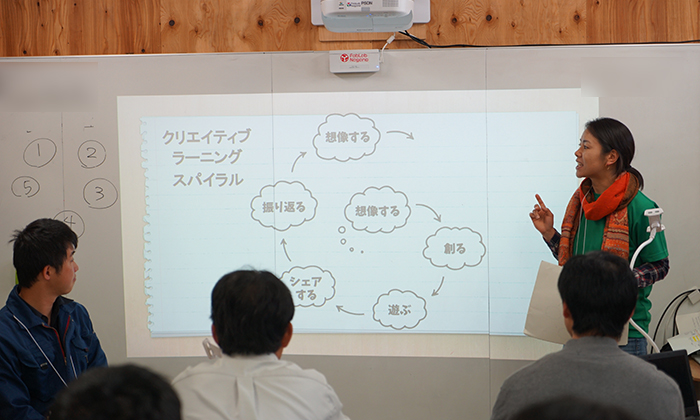 EPSON
FabLab
Nagano
クリエイティブ
ラーニング
スパイラル
想像する
振り返る
想像する
創る
シェア
する
遊ぶ
①
②
⑤
③
④